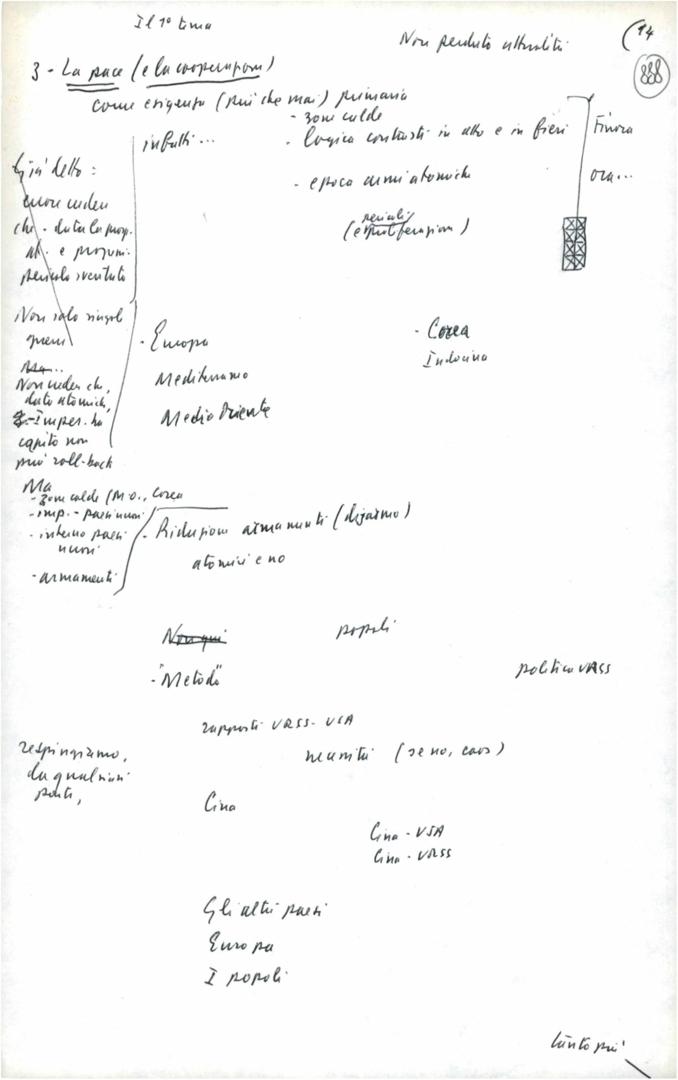 Il 1° tema
Non perduto attualità
(14
888
3 - La pace (e la cooperazione)
come esigenza (più che mai) primaria
- zone calde
infatti...
- logica contrasti in atto e in fieri
Finora
- epoca armi atomiche
ora...
pericoli
(e proliferazioni)
Già detto:
errore credere
che - data la prop.
at. e
pericolo sventato
Non solo singole
guerre
Ma...
Non credere che,
dato atomiche,
- Imper. ha
capito non
più roll-back
- Europa
Mediterraneo
Medio Oriente
- Corea
Indocina
Ma
- zone calde (M.O., Corea
- imp. - paesi nuovi
- interno paesi
nuovi
- armamenti
- Riduzione armamenti (disarmo)
atomici e no
Non qui
popoli
- "Metodi"
politica URSS
rapporti URSS - USA
necessità (se no, caos)
respingiamo,
da qualsiasi
parte,
Cina
Cina - USA
Cina - URSS
Gli altri paesi
Europa
I popoli
tanto più